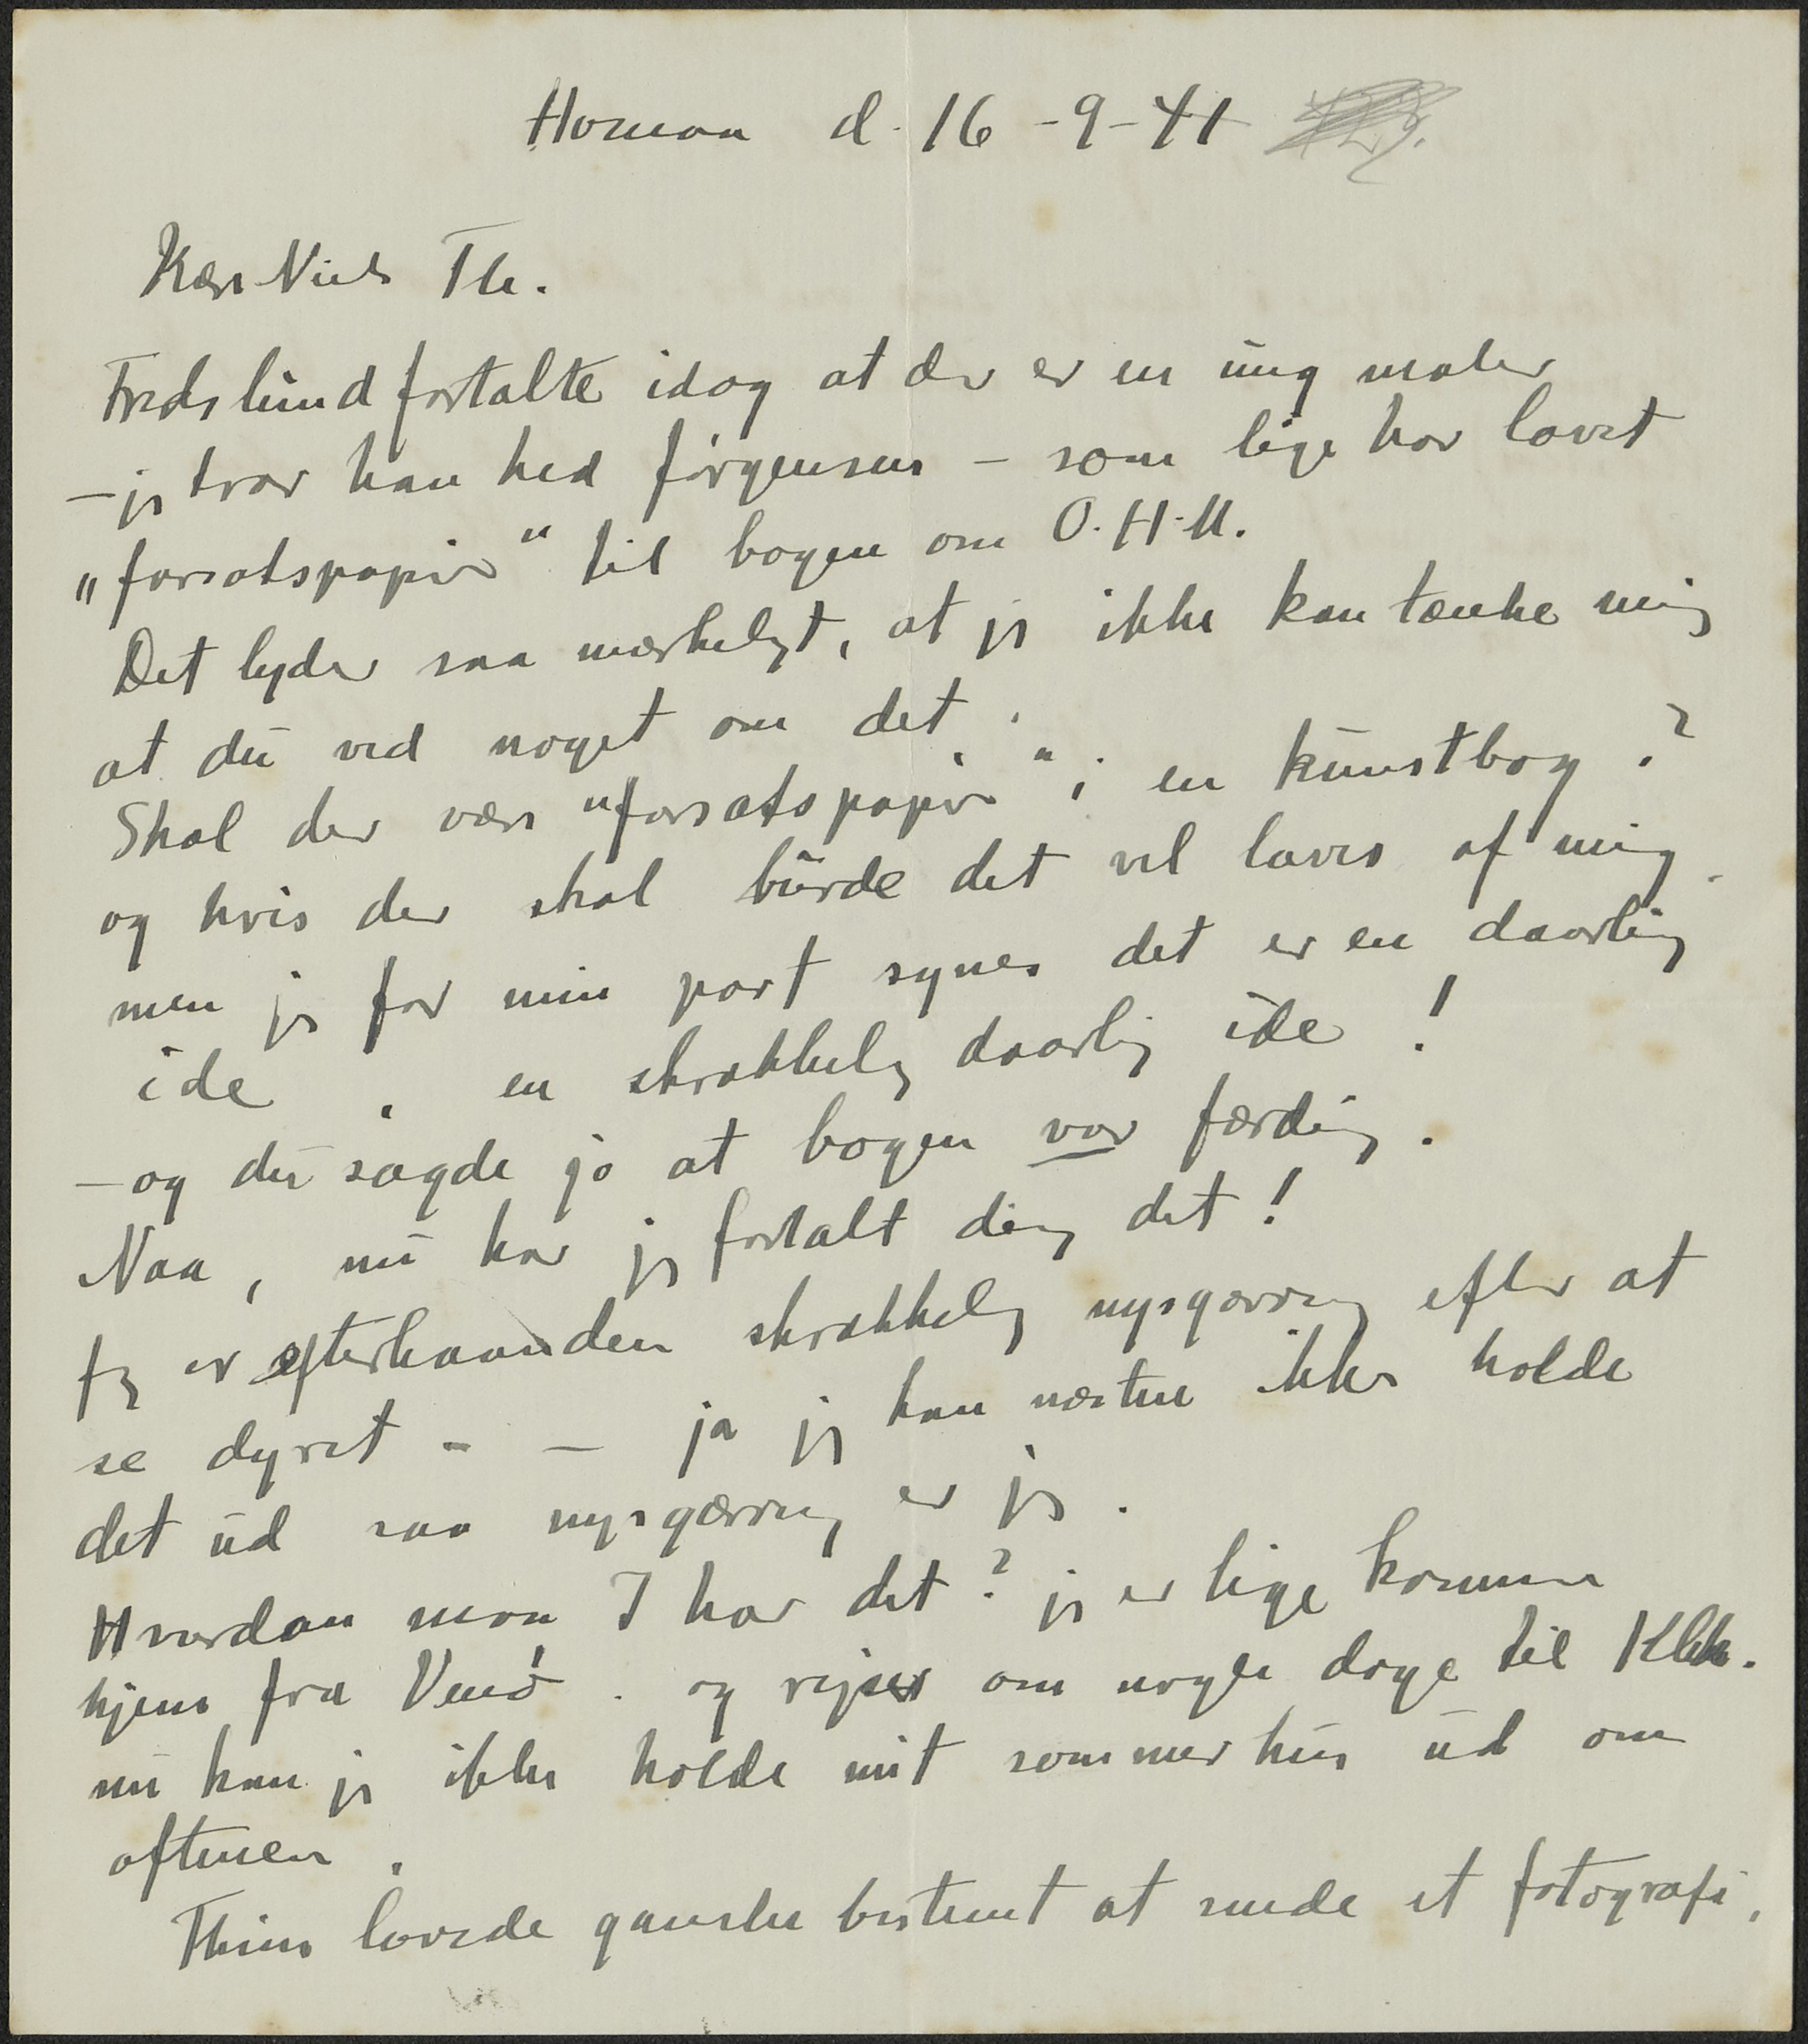 Homaa d. 16-9-41
Kære Niels Th.
Fredslund fortalte idag at der er en ung maler
- jeg tror han hed Jørgensen - som lige har lavet
"forsatspapir" til bogen om O.H.M.
Det lyder saa mærkeligt, at jeg ikke kan tænke mig
at du ved noget om det.
Skal der være "forsatspapir" i en kunstbog?
og hvis der skal burde det vel laves af mig.
men jeg for min part synes det er en daarlig
ide, en skrækkelig daarlig ide!
- og du sagde jo at bogen var færdig.
Naa, nu har jeg fortalt dig det!
Jeg er efterhaanden skrækkelig nysgærrig efter at
se dyret - - ja jeg kan næsten ikke holde
det ud saa nysgærrig er jeg.
Hvordan mon I har det? jeg er lige kommen
hjem fra Venø. og rejser om nogle dage til Kbh.
nu kan jeg ikke holde mit sommerhus ud om
aftenen.
lovede ganske bestemt at sende et fotografi,